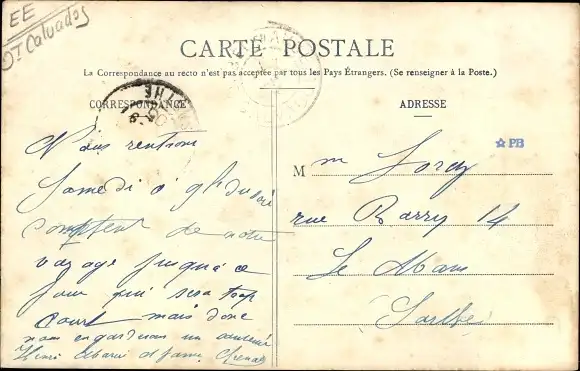 EE
Dt Calvados
CARTE POSTALE
La Correspondance au recto n'est pas acceptée par tous les Pays Étrangers. (Se renseigner à la Poste.)
CORRESPONDANCE
Nous rentrons
Samedi à 9h du soir
comptent de notre
voyage jusqu'à ce
jour qui sera trop
court mais donc
nous en garderons un
Henri Marie et
ADRESSE
PB
M
rue Barry 14
Le Mans
Sarthe